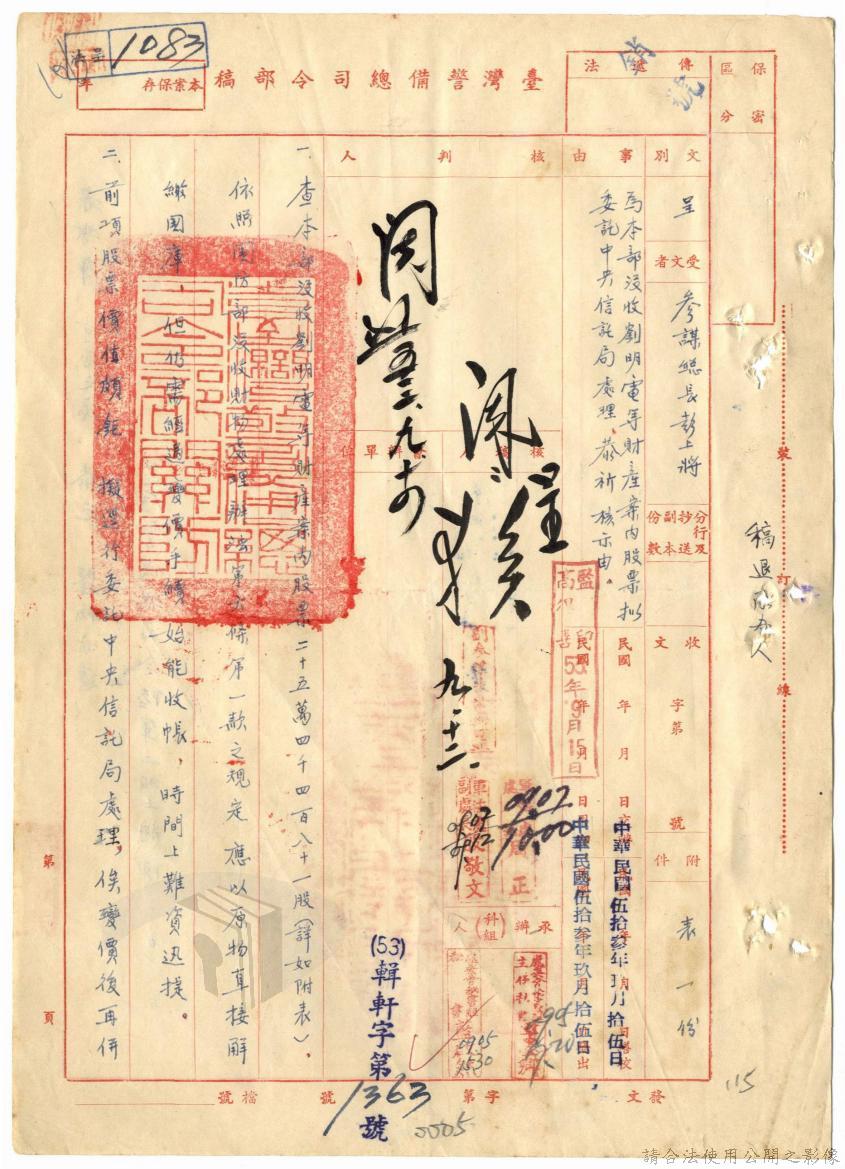 1083
本案保存
臺灣警備總司令部稿
傳遞法
保密區分
文別
呈
受文者
參謀總長彭上將
分行及抄送副本份數
事由
為本部沒收劉明電等財產案內股票擬
委託中央信託局處理,恭祈核示由。
收文
字第
號
附件
表一份
民國
年
月
日
核判
人
一、查本部沒收劉明電等財產案內股票二十五萬四千四百八十一股(詳如附表),
依照國防部沒收財物處理辦法第六條第一款之規定應以原物直接解
繳國庫,但仍需經過變價手續始能收帳,時間上難資迅捷。
二、前項股票價值頗鉅擬逕行委託中央信託局處理,俟變價後再併
監印
53年9月15日
0907
1000
中華民國伍拾叁年玖月拾伍日
中華民國伍拾叁年玖月拾伍日
承辦(科組)人
0905
1530
(53)輯軒字第1363號
發文
字第
號
檔號
0005
第
頁
裝
訂
線
稿退承辦人
115
請合法使用公開之影像